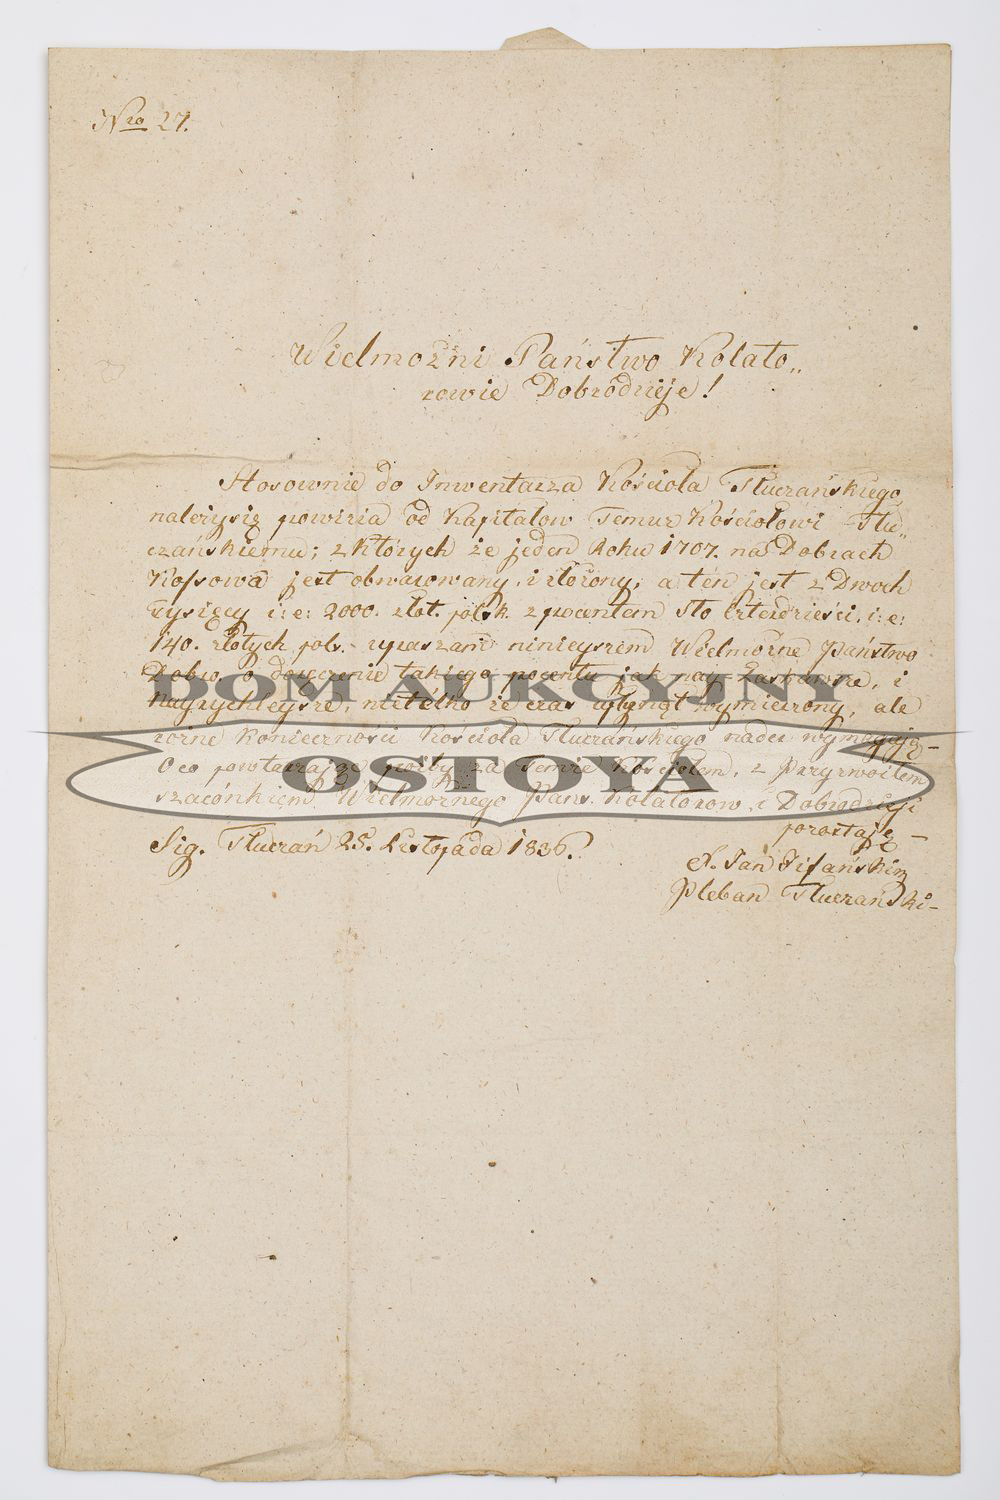 Nro 27.
Wielmożni Państwo Kolato„
rowie Dobrodzieje!
Stosownie do Inwentarza Kościoła Tłuczańskiego
należy się od Kapitałow Temuż Kościołowi Tłu„
czańskiemu; z których że jeden Roku 1707. na Dobrach
Kossowa jest obwarowany, i złożony, a ten jest z Dwoch
Tysięcy i: e: 2000. złot. polsk. z procentem sto czterdzieści, i: e:
140. złotych pols. upraszam ninieyszem Wielmożne Państwo
Dobro. o doręczenie takiego procentu jak nay Łaskawsze, i
Nayrychleysze, nietelko że czas upłynął wymierzony, ale
rożne konieczności Kościoła Tłuczańskiego nader wymagają –
O co powtarzając za Kościołem, z Przyzwoitem
szacónkiem Wielmożnego Pans. Kolatorow i Dobrodzieji
pozostaję –
Sig. Tłuczań 25. Listopada 1836.
X. Jan
Pleban Tłuczański –
DOM AUKCYJNY
OSTOYA